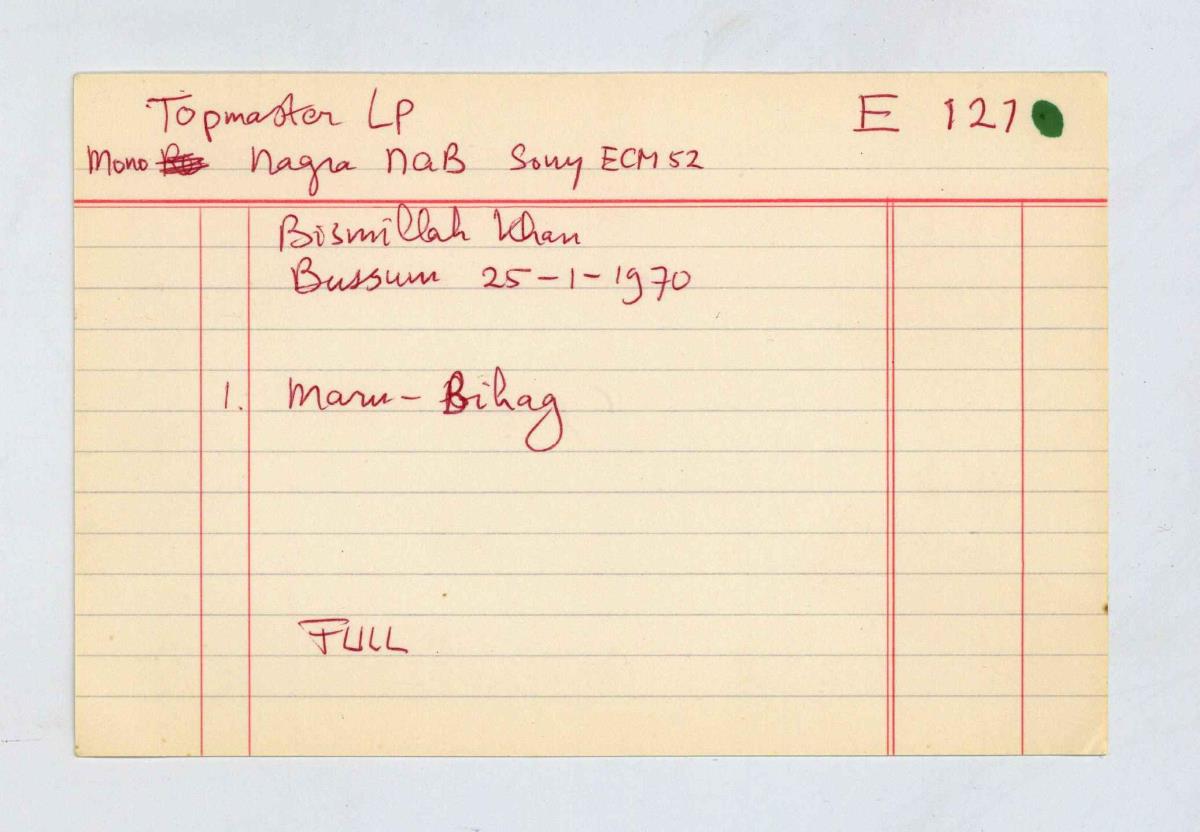 Topmaster LP E 127
Mono Nagra NAB Sony ECM 52
Bismillah Khan
Bussum 25-1-1970
1. Maru-Bihag
FULL